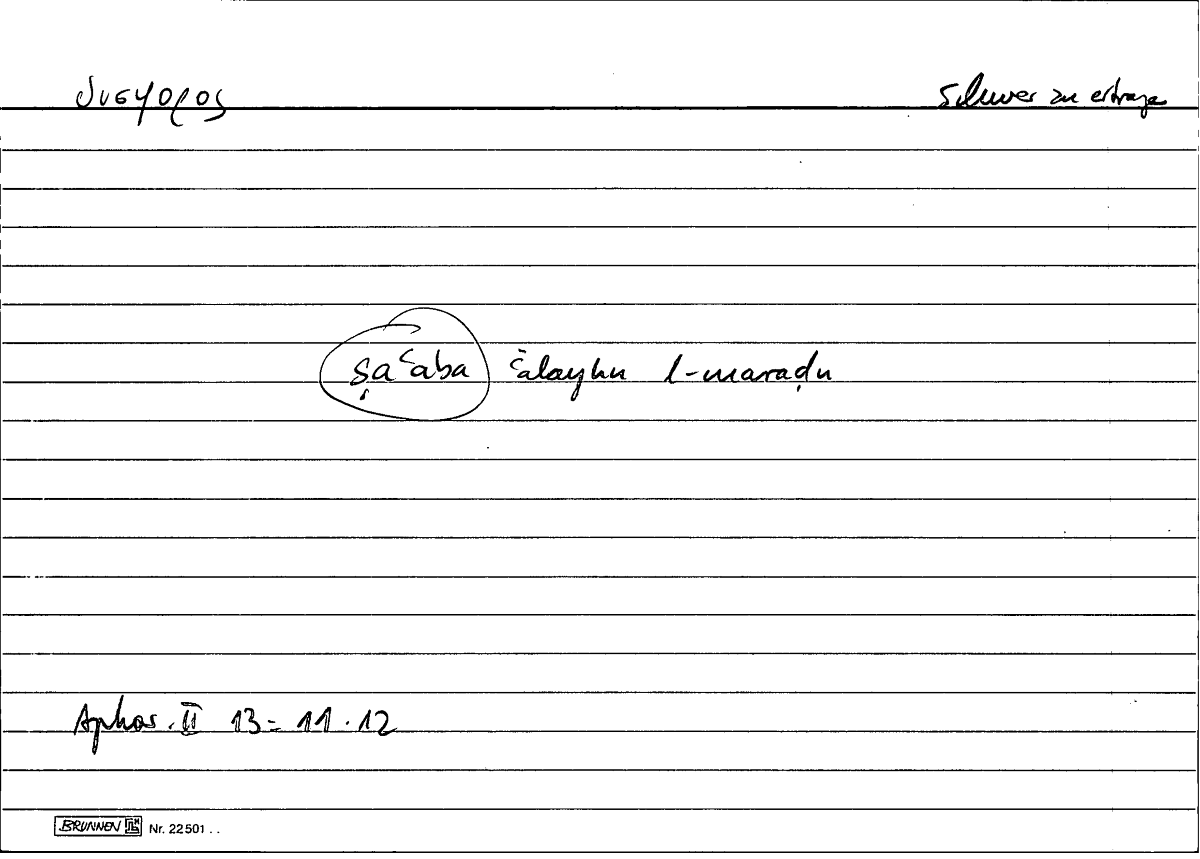 δυσφορος schwer zu ertrage
ṣaʿaba ʿalayhu l-maraḍu
Aphor. II 13 = 11.12
BRUNNEN Nr. 22501 . .